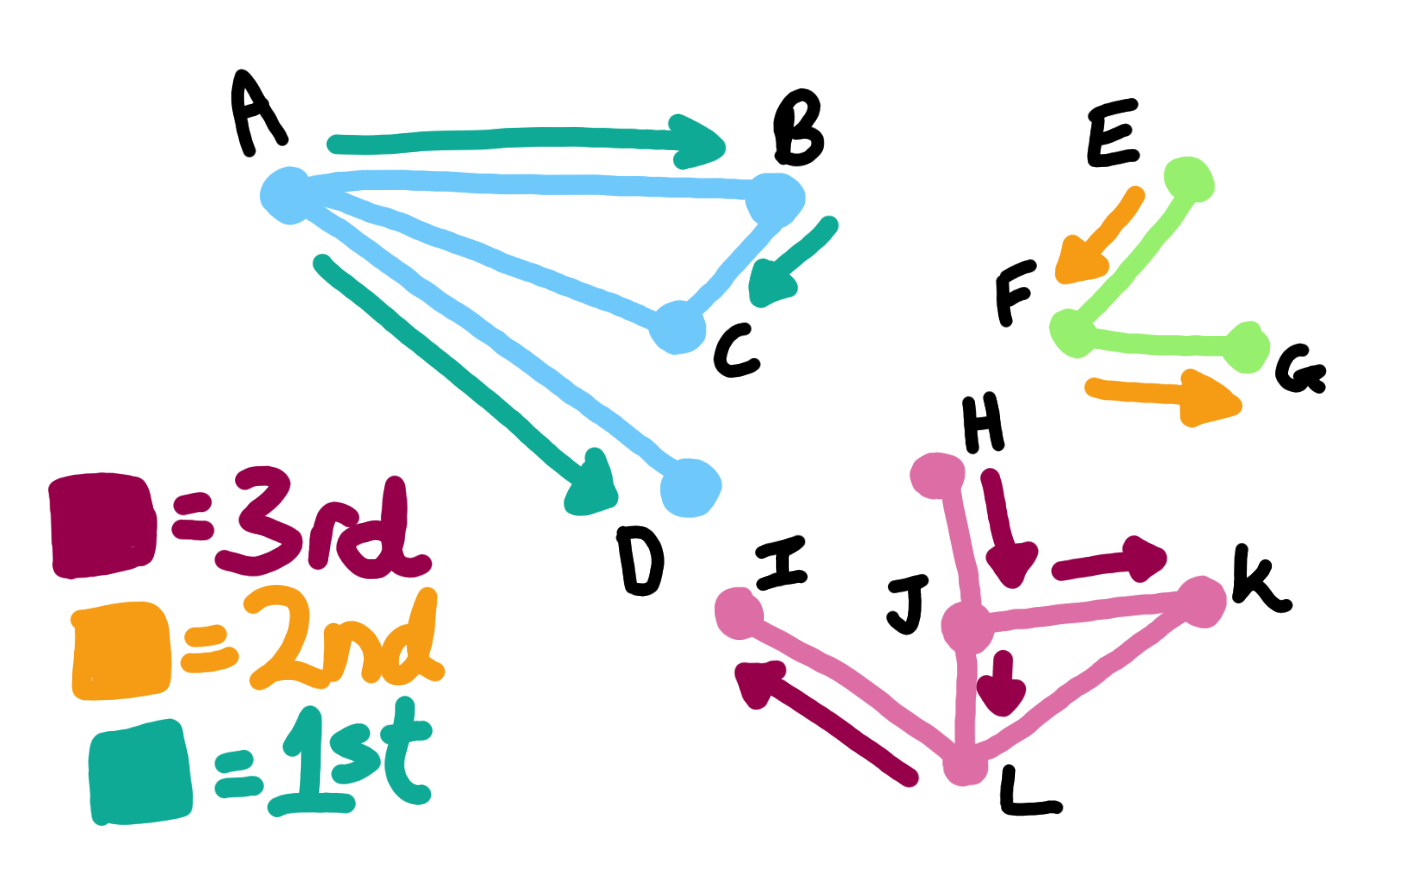 A
B
E
F
C
G
H
D
I
J
K
L
=3rd
=2nd
=1st